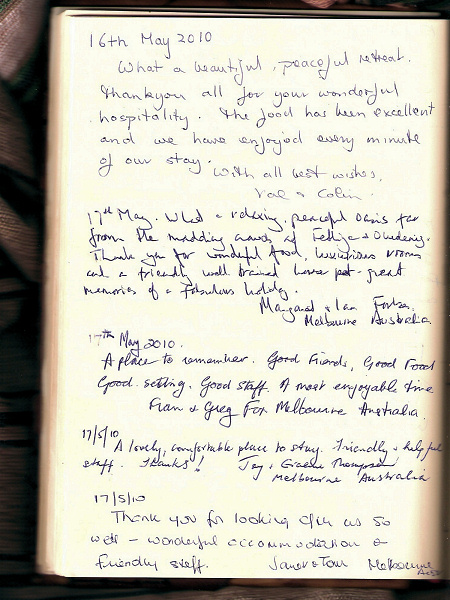 16th May 2010
What a beautiful, peaceful retreat.
Thankyou all for your wonderful
hospitality. The food has been excellent
and we have enjoyed every minute
of our stay.
With all best wishes,
Val & Colin.
17th May. What a relaxing, peaceful oasis far
from the madding crowds of Fethiye & Oludeniz.
Thank you for wonderful food, luxurious rooms
and a friendly well trained
great
memories of a fabulous holiday.
Margaret & Ian Forbes
Melbourne Australia.
17th May 2010.
A place to remember. Good Friends, Good Food
Good setting. Good staff. A most enjoyable time
Fran & Greg Fox Melbourne Australia.
17/5/10
A lovely, comfortable place to stay. Friendly & helpful
staff. Thanks! Joy & Graeme Thompson
Melbourne Australia
17/5/10
Thank you for looking after us so
well - wonderful accommodation &
friendly staff. Janet & Tom Melbourne
Aust